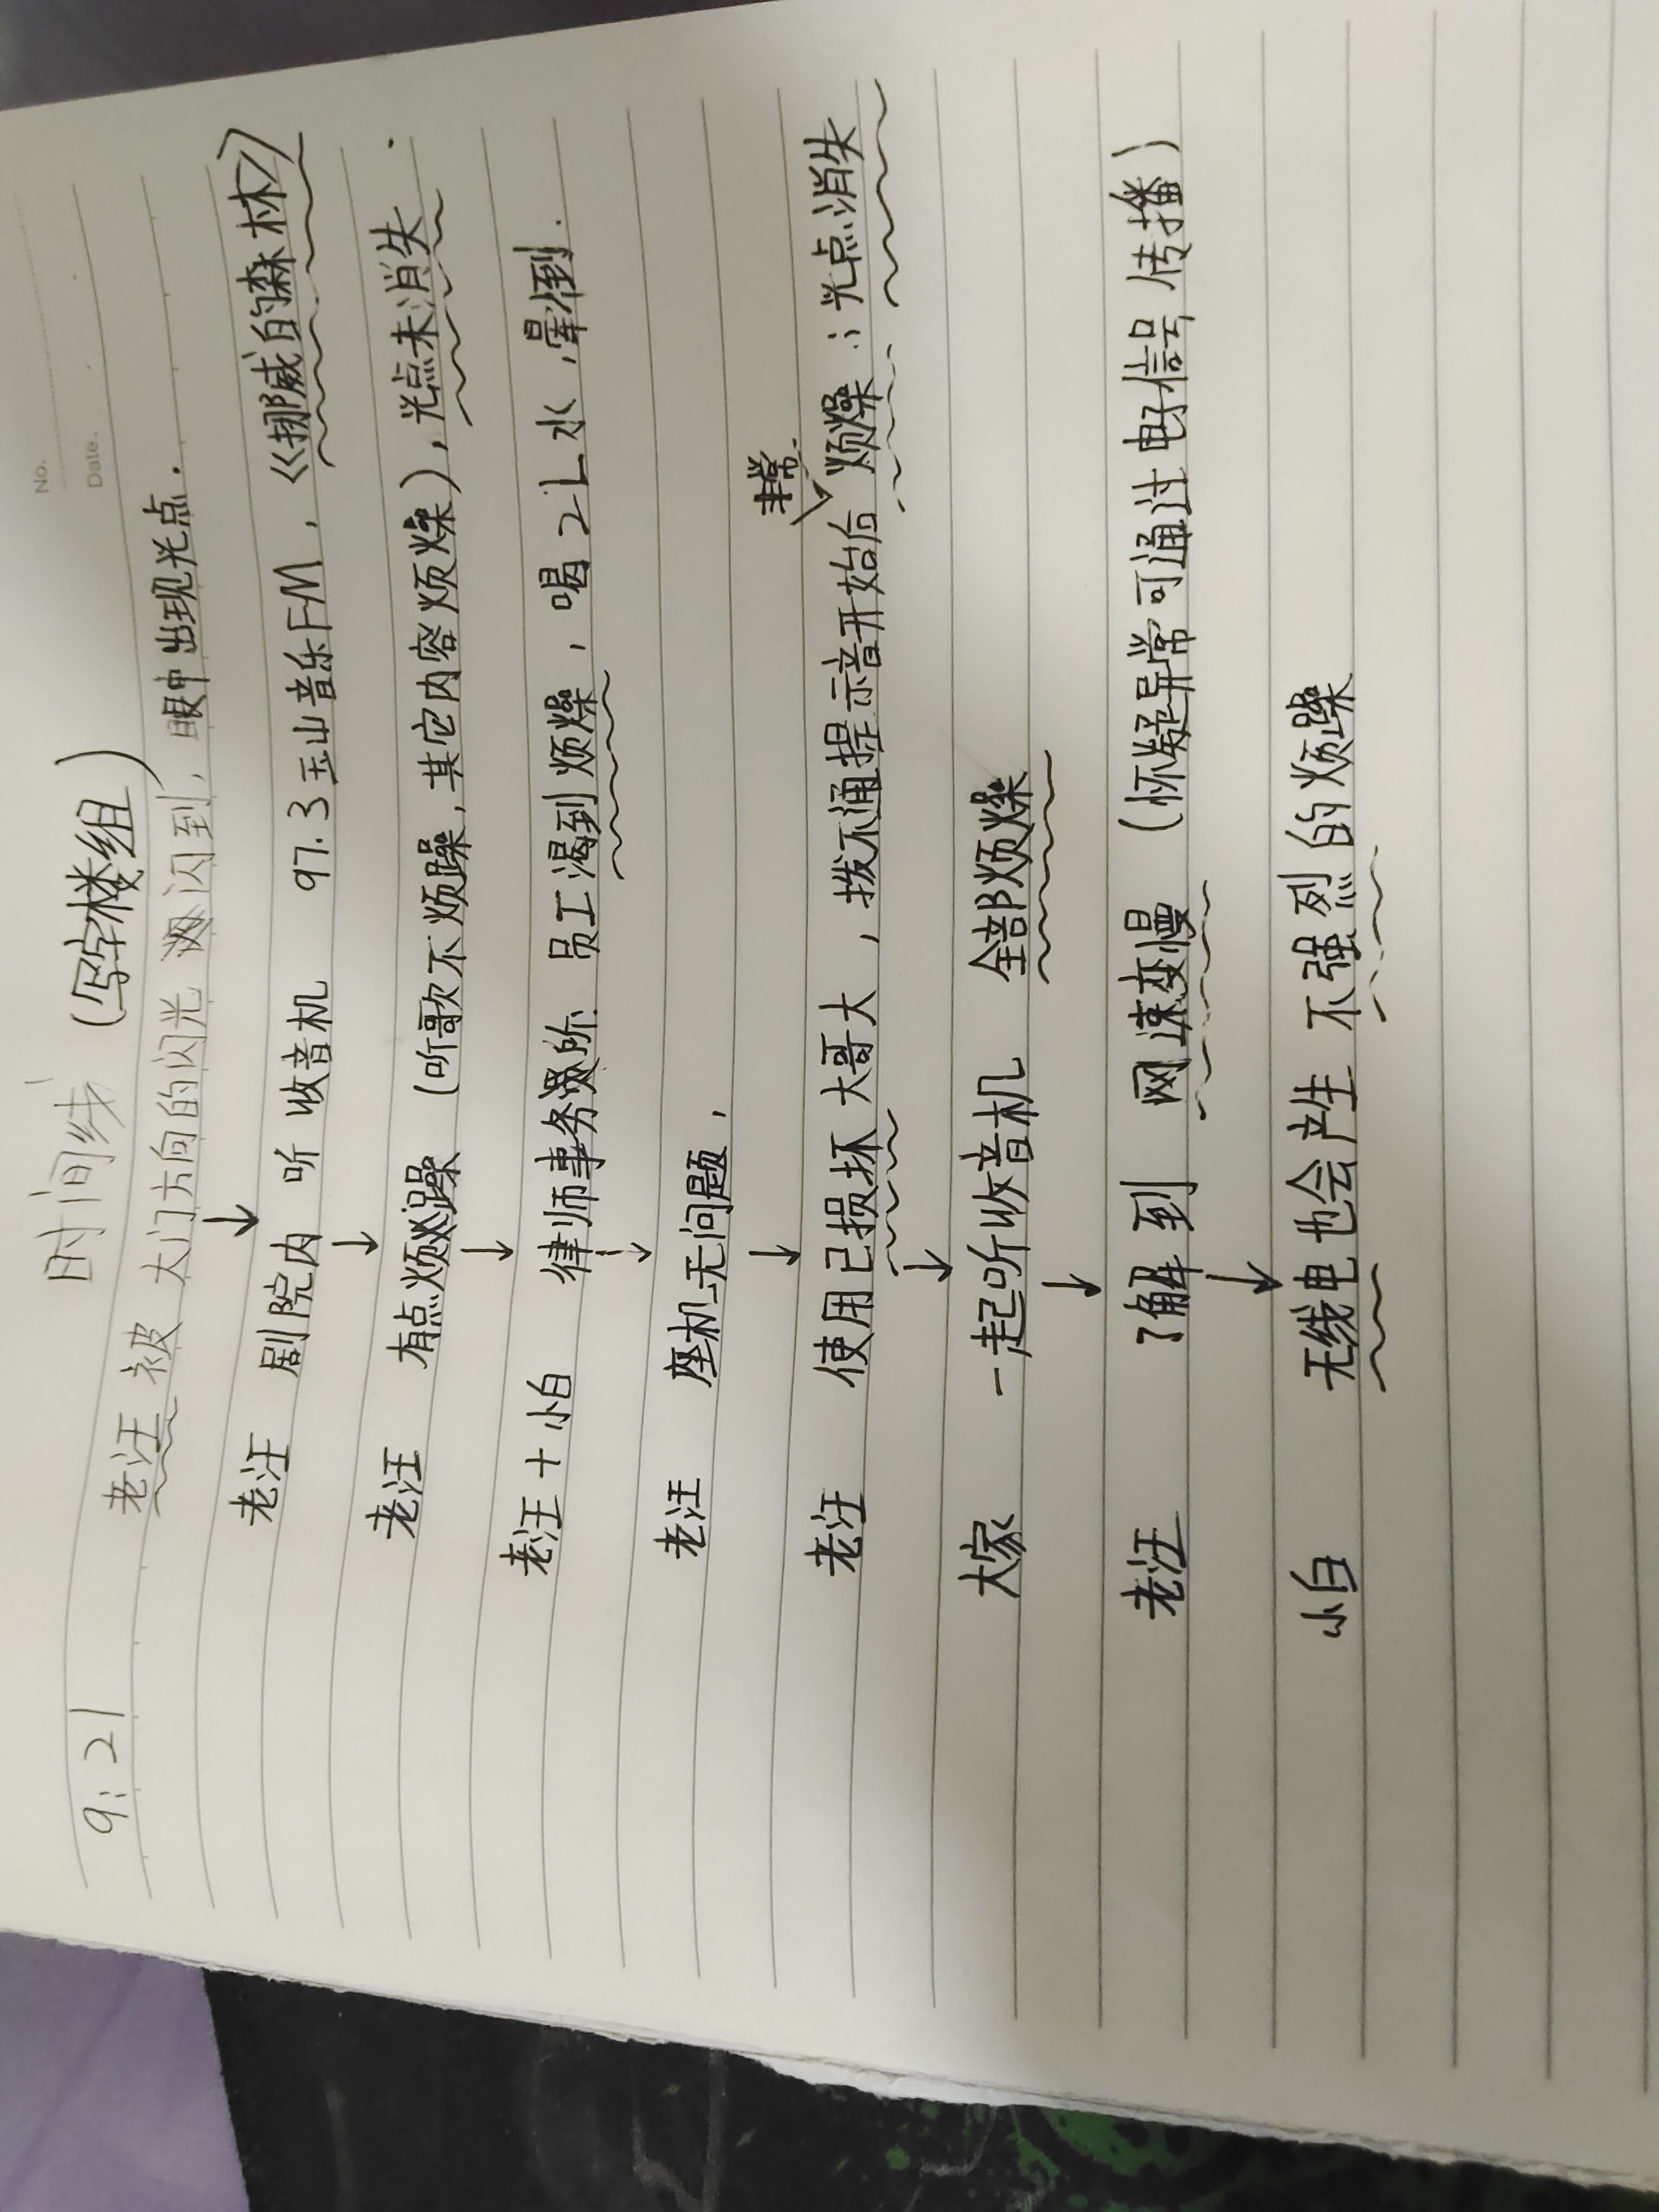 No.
Date.
时间线 (写字楼组)
9:21 老汪被 大门方向的闪光 闪到，眼中出现光点.
↓
老汪 剧院内 听 收音机 97.3 玉山音乐FM，《挪威的森林》
↓
老汪 有点烦躁 (听歌不烦躁，其它内容烦燥)，光点未消失.
↓
老汪+小白 律师事务所 员工渴到烦燥，喝2L水，晕倒.
↓
老汪 座机无问题，
↓
非常
老汪 使用已损坏大哥大，拨不通提示音开始后 烦燥；光点消失
↓
大家 一起听收音机 全部烦燥
↓
老汪 了解到 网速变慢 (怀疑异常可通过电信号传播)
↓
小白 无线电也会产生 不强烈的烦躁